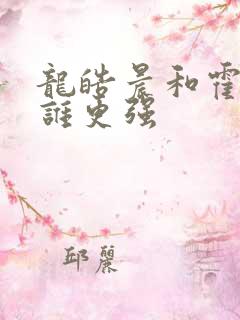 龍皓晨和霍
誰更强
邱麗